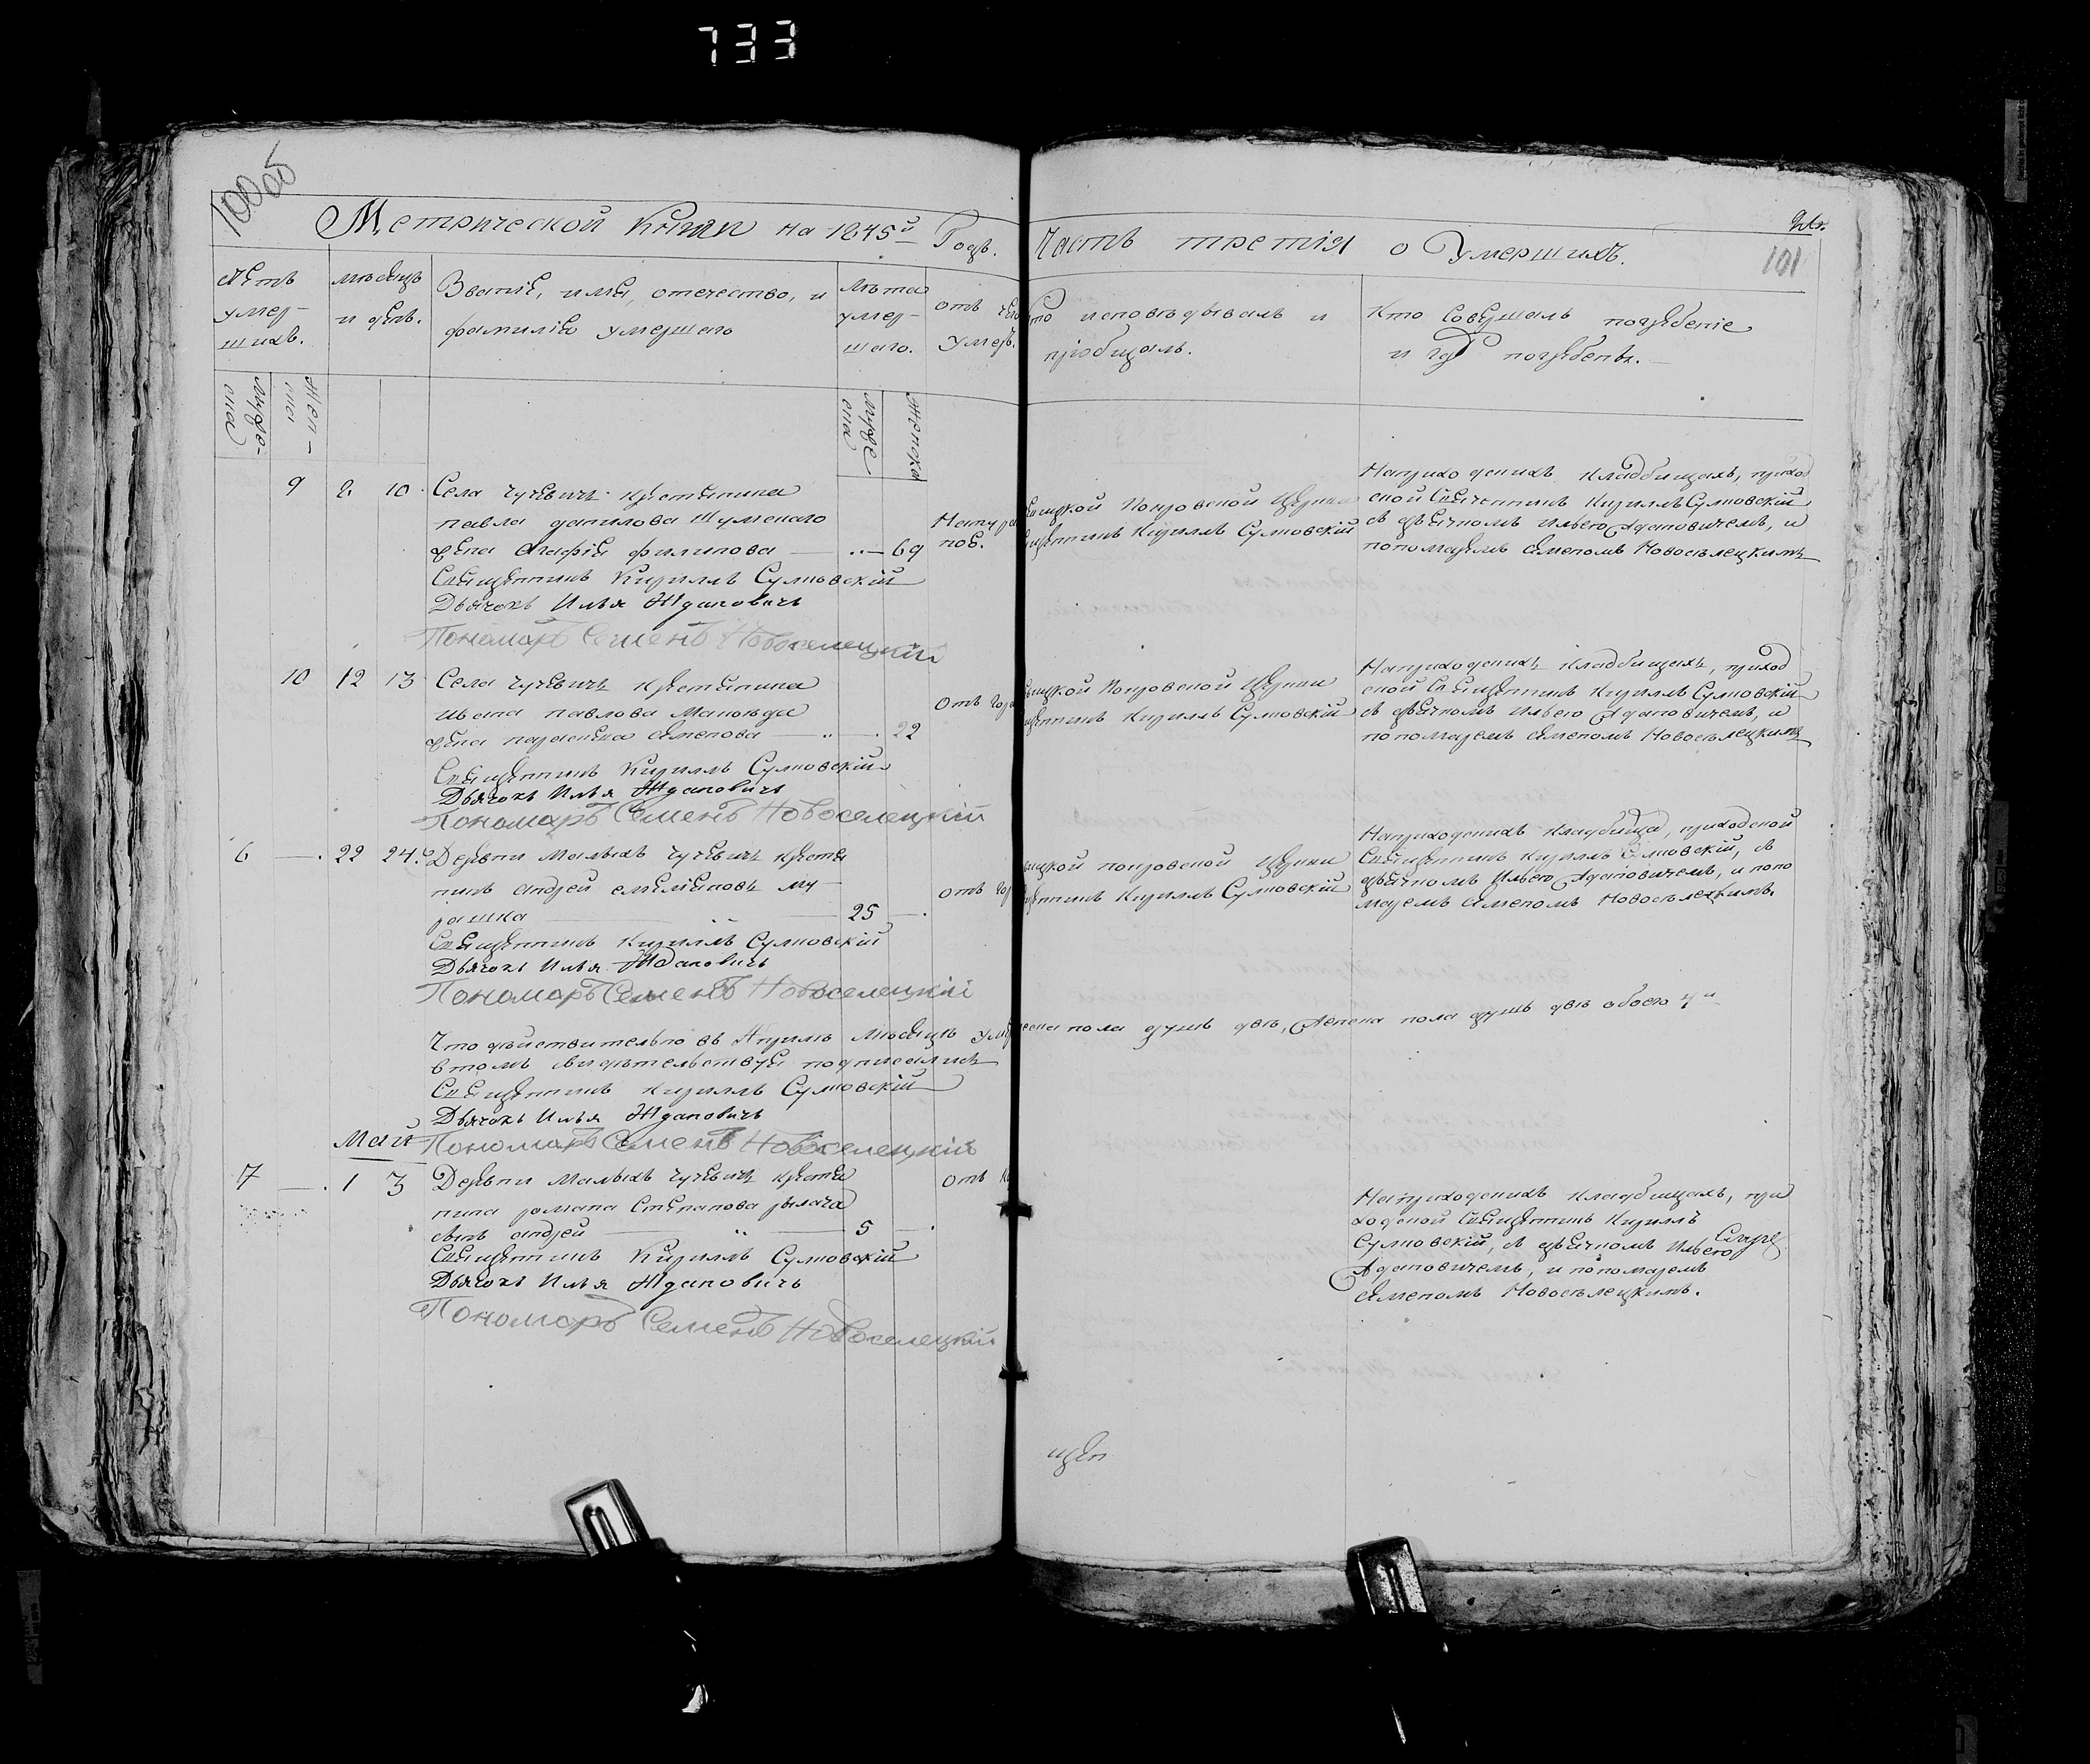 733
Метрической Книги на 1845й Годъ.
Часть третія о Умершихъ.
101
Счетъ умер-шихъ.
мѣсяцъ и день.
Званіе, имя, отечество, и
фамилія умершаго
Лѣта умер-шаго.
отъ чего умеръ.
Кто исповѣдывалъ и
пріобщалъ.
Кто Совершалъ погребеніе
и гдѣ погребены.
Муже-ска
Жен-ска
Муже ска
Женска
9 2. 10. Села Чучевичъ крестьянина
павла данилова Шуменаго
жена Агафія филипова — 69
Священникъ Кириллъ Сулковскій
Дьячокъ Илья Жданович
Пономаръ Семенъ Новоселецкій
Покровской Церкви
Кириллъ Сулковскій
На приходскихъ кладбищахъ, приход
ской Священникъ Кириллъ Сулковскій
съ дьячкомъ Ильею Ждановичемъ, и
пономаремъ Семеномъ Новоселецкимъ
10 12 13 Села Чучевичъ крестьянина
Ивана павлова
жена параскева Семенова — 22
Священникъ Кириллъ Сулковскій
Дьячокъ Илья Ждановичъ
Пономаръ Семенъ Новоселецкій
Покровской Церкви
Кириллъ Сулковскій
На приходскихъ кладбищахъ, приход
ской Священникъ Кириллъ Сулковскій
съ дьячкомъ Ильею Ждановичемъ, и
пономаремъ Семеномъ Новоселецкимъ
6 — 22 24. Деревни Малыхъ Чучевичъ кресть
нинъ андрей
25 —
Священникъ Кириллъ Сулковскій
Дьячокъ Илья Ждановичъ
Пономаръ Семенъ Новоселецкій
покровской Церкви
Кириллъ Сулковскій
На приходскихъ кладбища, приходской
Священникъ Кириллъ Сулковскій, съ
дьячкомъ Ильею Ждановичемъ, и поно
маремъ Семеномъ Новоселецкимъ.
Что дѣйствительно въ Априлѣ Мѣсяцѣ
пола душъ двѣ, Женска пола душъ двѣ обоего 4и
втомъ свидѣтельствуя подписались
Священникъ Кириллъ Сулковскій
Дьячокъ Илья Ждановичъ
Пономаръ Семенъ Новоселецкій
Май
7 — 1 3 Деревни Малыхъ Чучевичъ кресть
нина романа Степанова
сынъ андрей — 5 —
Священникъ Кириллъ Сулковскій
Дьячокъ Илья Жданович
Пономаръ Семенъ Новоселецкій
На приходскихъ кладбищахъ, при
ходской Священникъ Кириллъ
Сулковскій, съ дьячкомъ Ильею
Ждановичемъ, и пономаремъ
Семеномъ Новоселецкимъ.